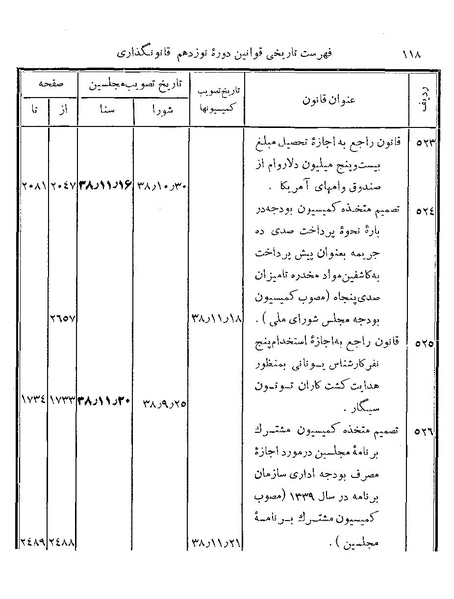 ۱۱۸ فهرست تاریخی قوانین دورهٔ نوزدهم قانونگذاری
ردیف عنوان قانون تاریخ تصویب کمیسیونها تاریخ تصویب مجلسین صفحه
شورا سنا از تا
۵۲۳ قانون راجع به اجازهٔ تحصیل مبلغ
بیست‌وپنج میلیون دلار وام از
صندوق وامهای آمریکا . ۳۸٫۱۰٫۳۰ ۳۸٫۱۱٫۱۶ ۲۰۴۷ ۲۰۸۱
۵۲۴ تصمیم متخذه کمیسیون بودجه در
بارهٔ نحوهٔ پرداخت صدی ده
جریمه بعنوان پیش پرداخت
به کاشفین مواد مخدره تامیزان
صدی پنجاه (مصوب کمیسیون
بودجه مجلس شورای ملی) . ۳۸٫۱۱٫۱۸ ۲۶۵۷
۵۲۵ قانون راجع به اجازهٔ استخدام پنج
نفر کارشناس یونانی بمنظور
هدایت کشت کاران توتون
سیگار . ۳۸٫۹٫۲۵ ۳۸٫۱۱٫۲۰ ۱۷۳۳ ۱۷۳۴
۵۲۶ تصمیم متخذه کمیسیون مشترک
برنامهٔ مجلسین در مورد اجازهٔ
مصرف بودجه اداری سازمان
برنامه در سال ۱۳۳۹ (مصوب
کمیسیون مشترک برنامهٔ
مجلسین ) . ۳۸٫۱۱٫۲۱ ۲٤۸۸ ۲٤۸۹